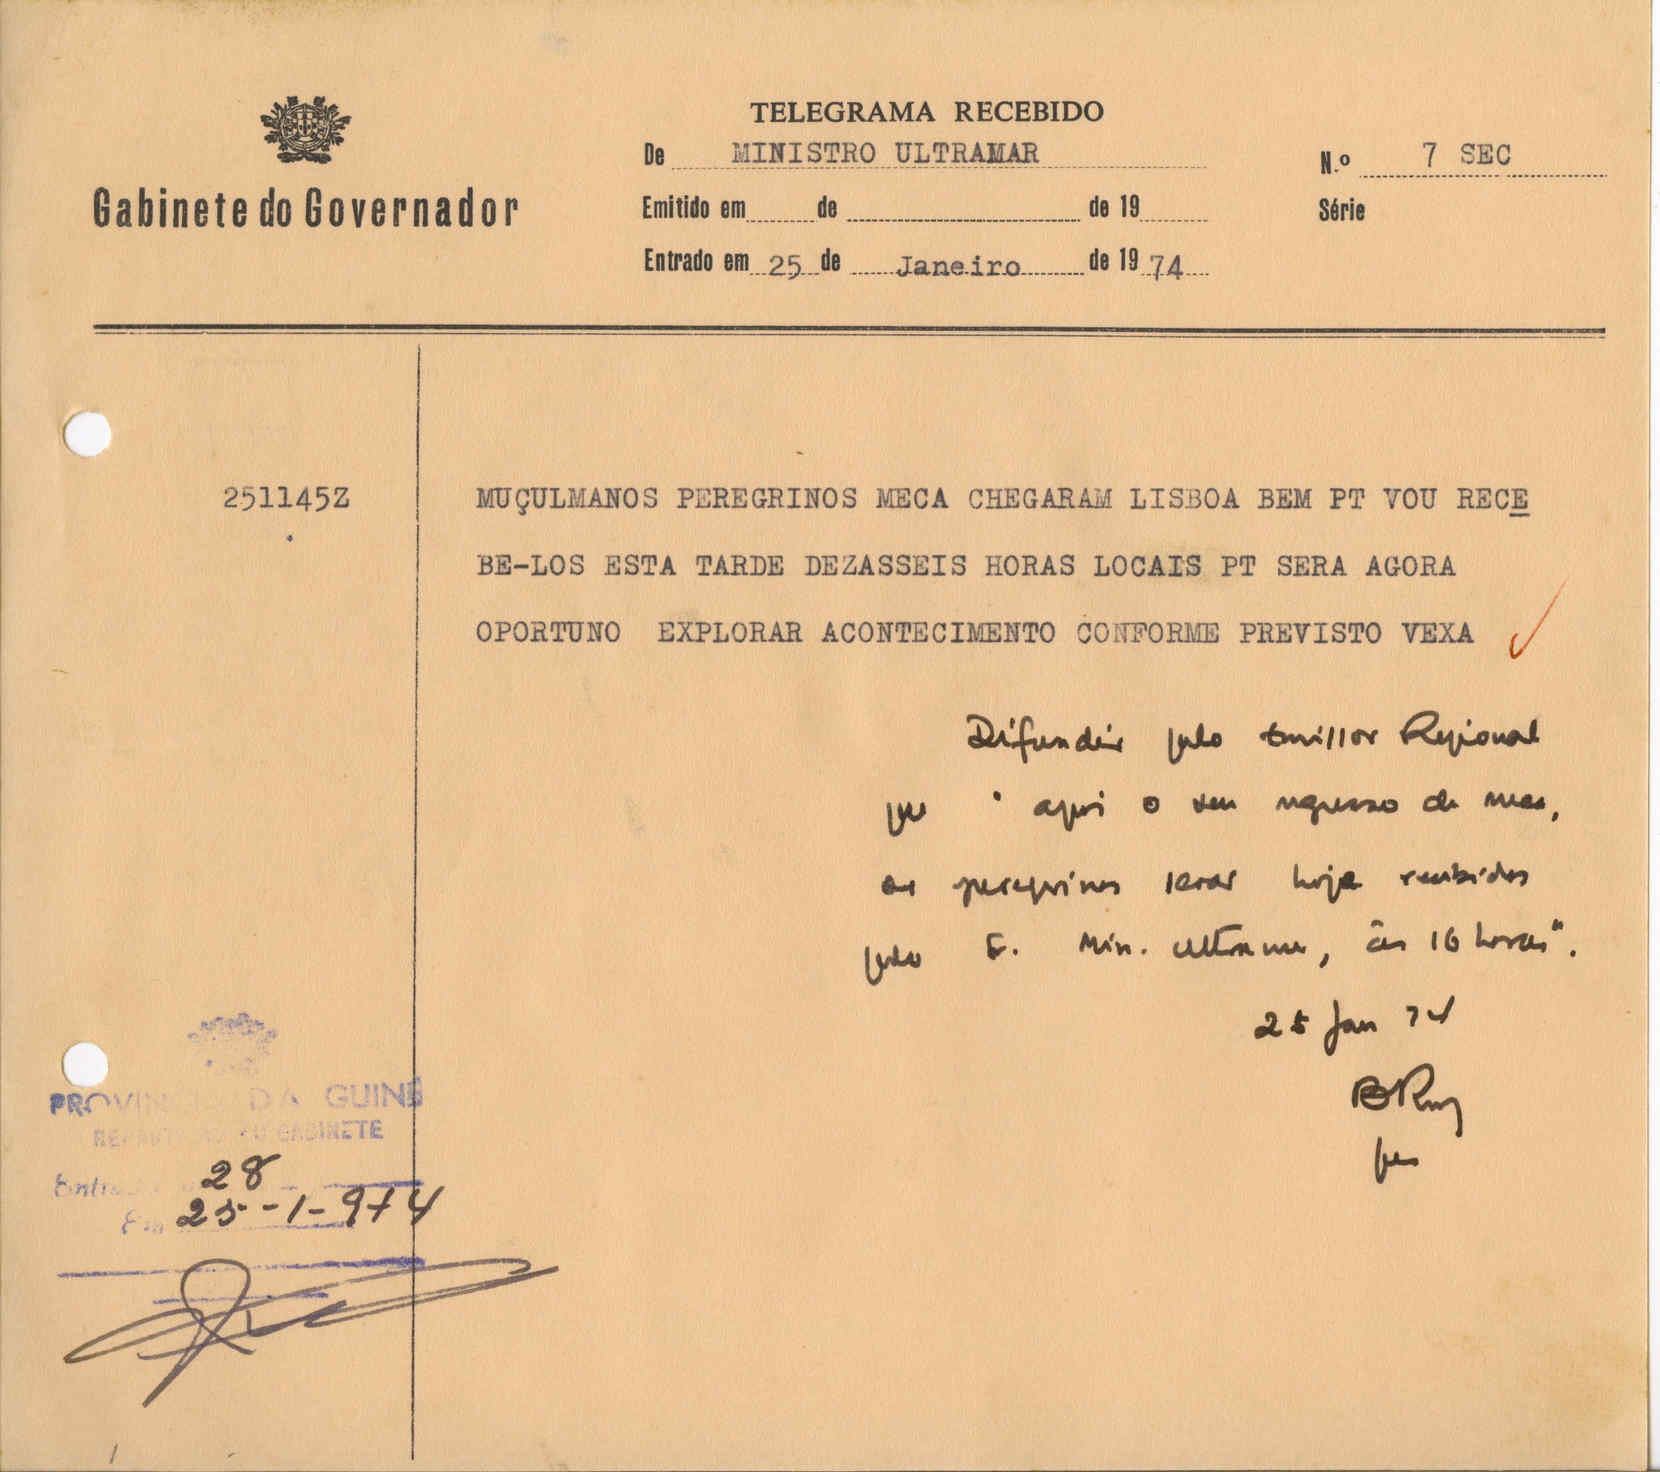 TELEGRAMA RECEBIDO
De MINISTRO ULTRAMAR
N.º 7 SEC
Gabinete do Governador
Emitido em de de 19
Série
Entrado em 25 de Janeiro de 1974
251145Z
MUÇULMANOS PEREGRINOS MECA CHEGARAM LISBOA BEM PT VOU RECE
BE-LOS ESTA TARDE DEZASSEIS HORAS LOCAIS PT SERA AGORA
OPORTUNO EXPLORAR ACONTECIMENTO CONFORME PREVISTO VEXA
Difundir pelo Emissor Regional
que " após o seu regresso de Meca,
os peregrinos serão hoje recebidos
pelo E. Min. Ultramar, às 16 horas".
25 Jan 74
PROVINCIA DA GUINÉ
REPARTIÇÃO DO GABINETE
Entrada 28
Em 25-1-974